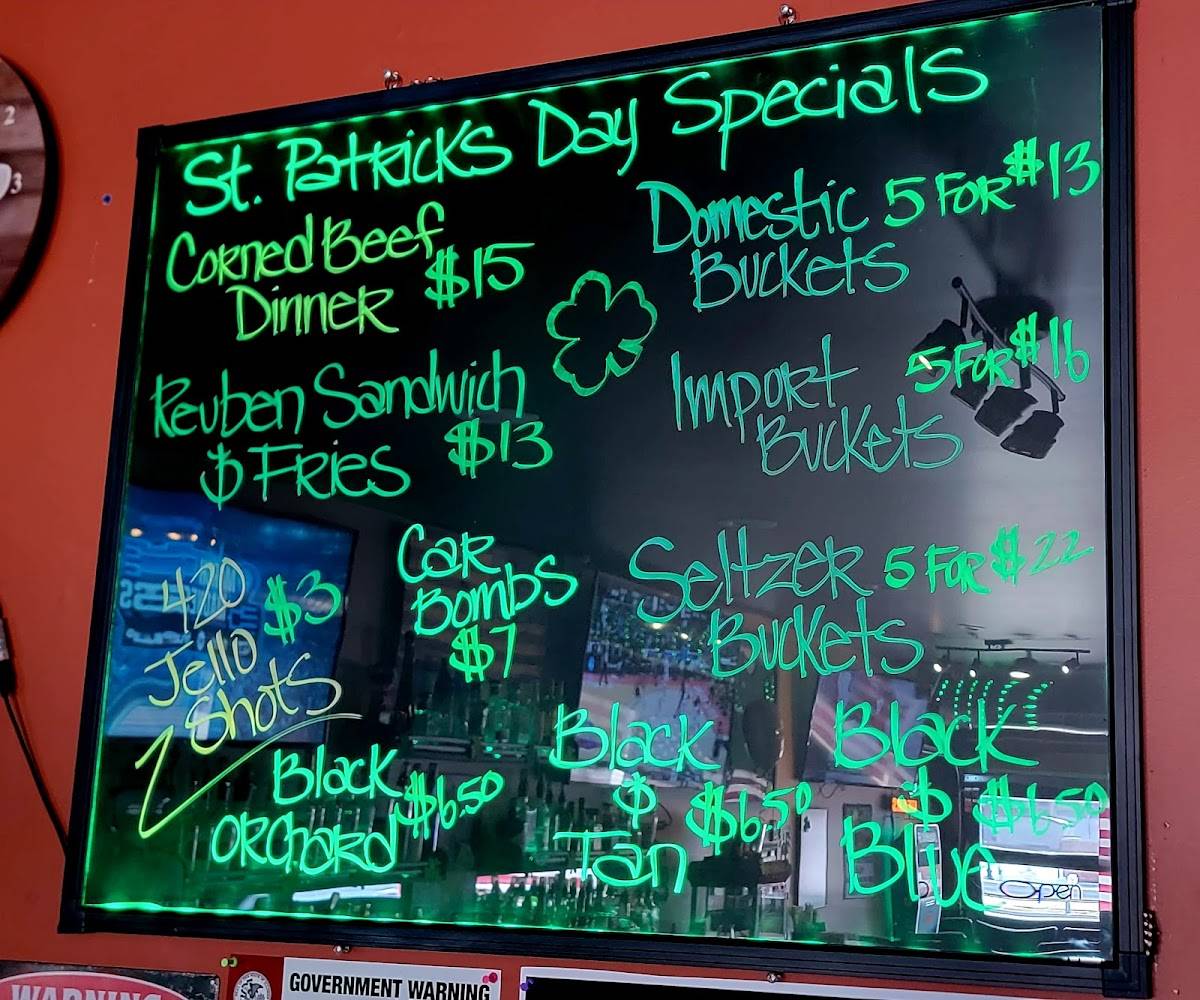 St. Patricks Day Specials
Corned Beef
Dinner $15
Reuben Sandwich
& Fries $13
Domestic 5 for $13
Buckets
Import 5 for $16
Buckets
Seltzer 5 for $22
Buckets
420
Jello $3
Shots
Car
Bombs
$7
Black
Orchard $6.50
Black
&
Tan $6.50
Black
& $6.50
Blue
Open
2
3
WARNING
GOVERNMENT WARNING